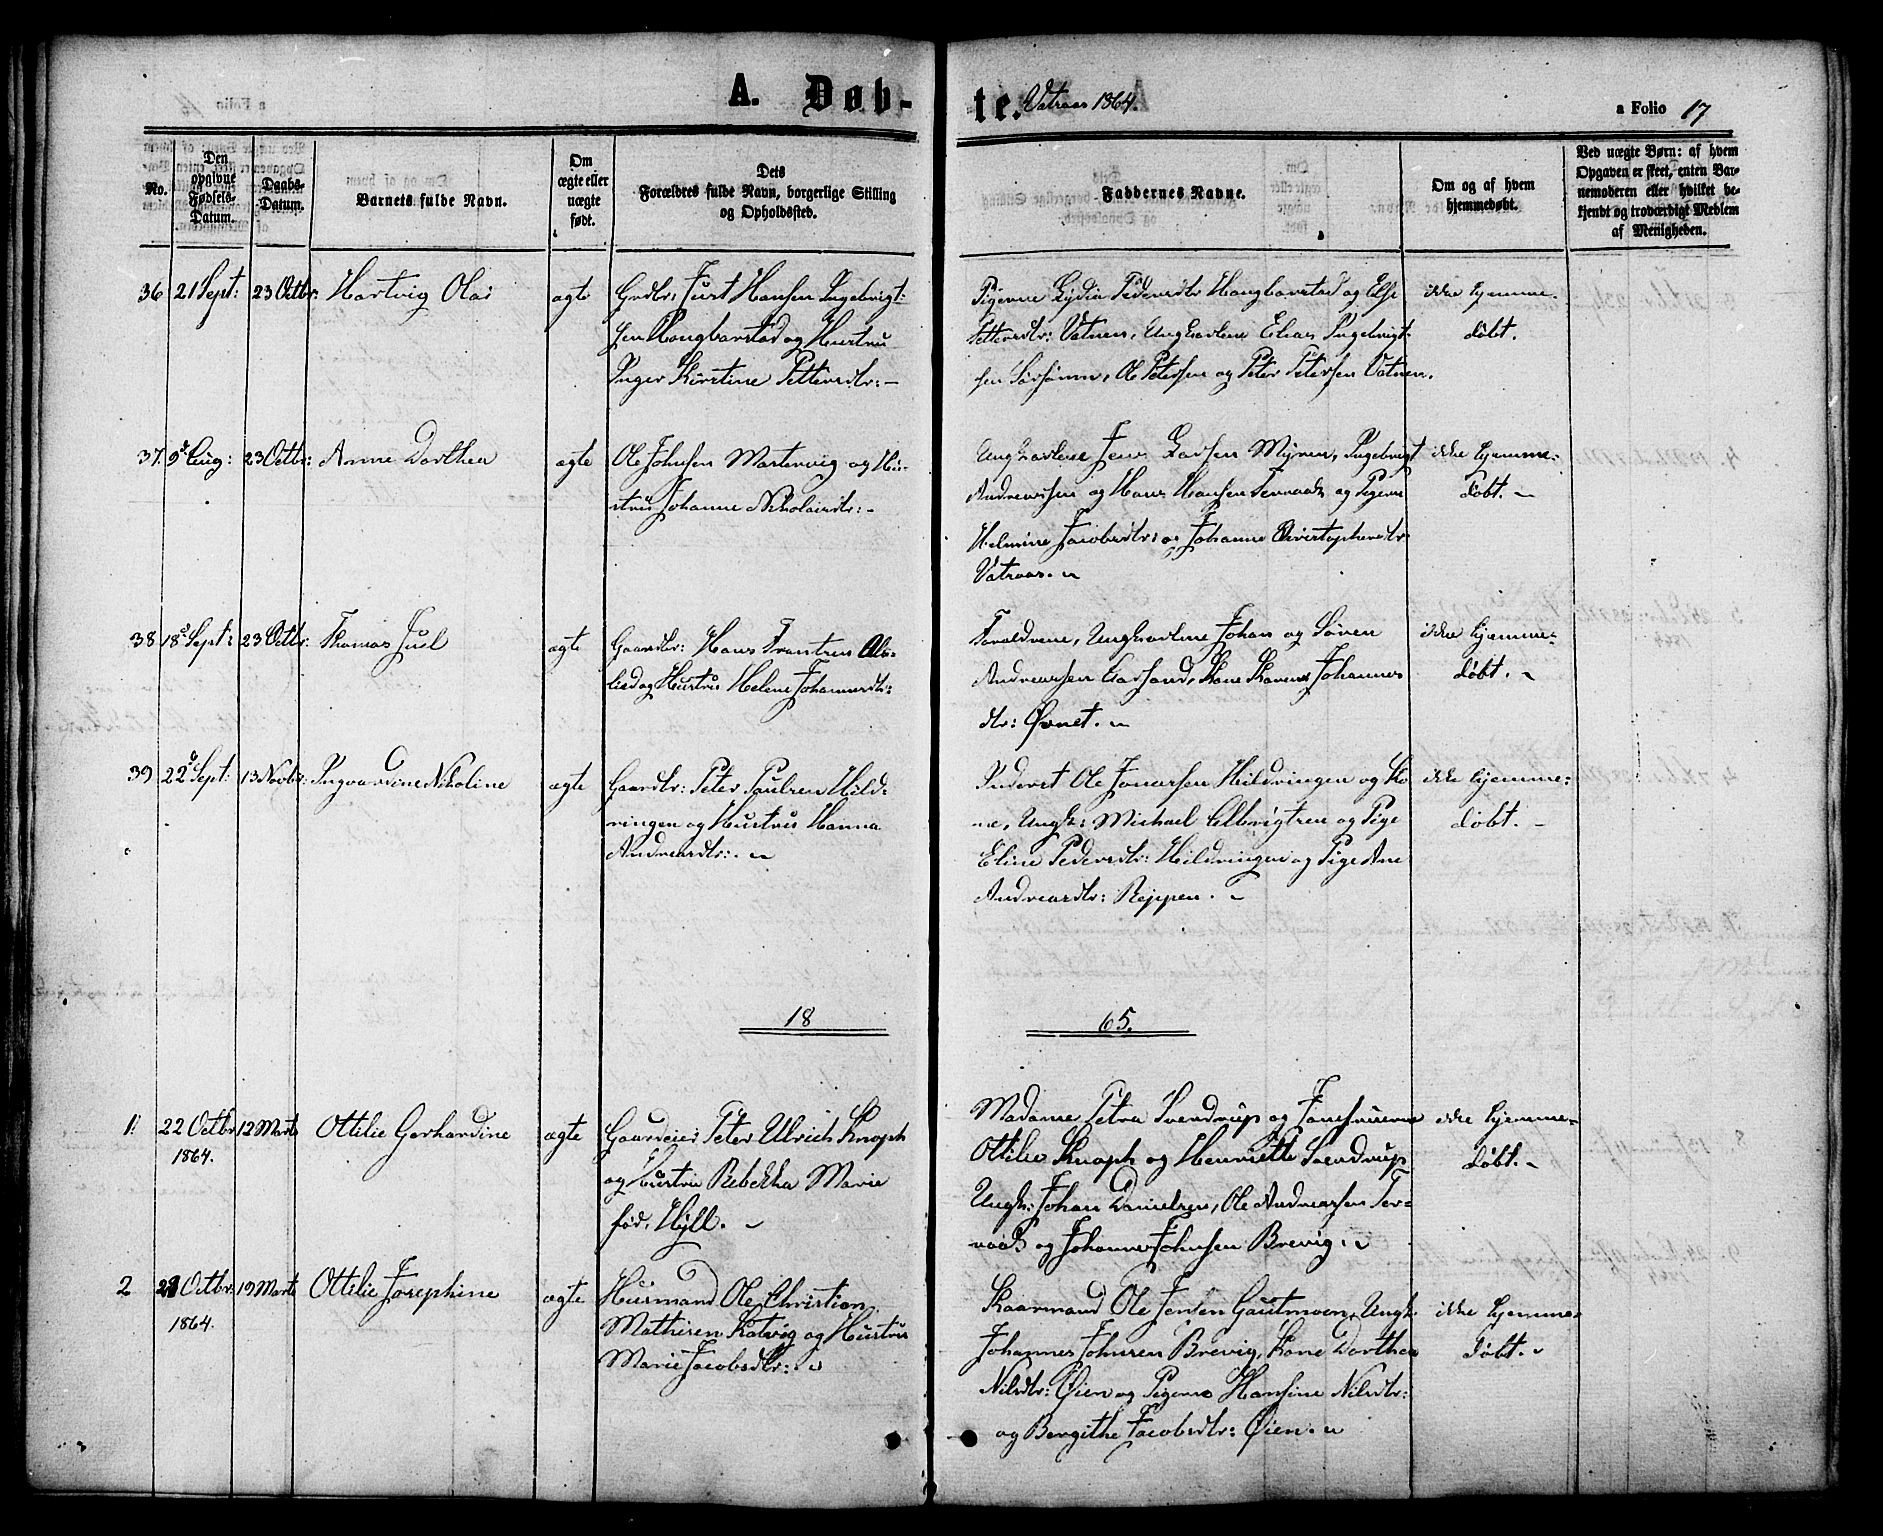 A. Døb-
te. Vatraas 1864.
a Folio 17
No.
Den opgivne Fødsels-Datum.
Daabs-Datum.
Barnets fulde Navn.
Om ægte eller uægte født.
Dets
Forældres fulde Navn, borgerlige Stilling
og Opholdssted.
Faddernes Navne.
Om og af hvem
hjemmedøbt.
Ved uægte Børn: af hvem
Opgaven er skeet, enten Bar-
nemoderen eller hvilket be-
kjendt og troværdigt Medlem
af Menigheden.
36 21 Sept: 23 Octbr: Hartvig Olai ægte
Hansen Ingebrigt:
og Hustru
Inger Kirstine Pettersdtr: -
Pigerne Lydia Pedersdtr Hongbarstad og Else
Pettersdtr: Vatnen, Ungkarlene Elias Ingebrigt-
sen, Ole Petersen og Peter Petersen Vatnen.
ikke hjemme-
døbt.
37. 9d Aug: 23 Octbr: Anne Dorthea ægte
Ole Johnsen Martenvig og Hu-
stru Johanne Nikolaisdtr: -
Ungkarlene Jens Larsen Myren, Ingebrigt
Andreassen og Hans Hansen Tervaak og Pigerne
Helmine Jacobsdtr: og Johanne Christophersdtr
Vatraas.
ikke hjemme-
døbt. -
38 18d Sept: 23 Octbr: Thomas Juel ægte
Gaardbr: Hans Frantzen
og Hustru Helene Johannesdtr:
Forældrene, Ungkarlene Johan og Søren
Andreassen, Kone Karen Johannes
dtr: Øvnet.
ikke hjemme-
døbt. -
39 22d Sept: 13 Novbr: Ingvardine Nikoline ægte
Gaardbr: Peter Paulsen Hild-
ringen og Hustru Hanna
Andreasdtr:.
Inderst Ole Jonassen Hildringen og Ko-
ne, Ungk: Michael Albrigtsen og Pige
Eline Pedersdtr: Hildringen og Pige Ane
Andreasdtr: Reppen.
ikke hjemme-
døbt. -
18
65.
1. 22 Octbr 1864. 12 Marts Ottilie Gerhardine ægte
Gaardeier Peter Ulrich Knoph
og Hustru Rebekka Marie
fød. Hÿll.
Madame Petra Svendrup og Jomfruerne
Ottilie Knoph og Henriette Svendrup
Ungk: Johan Danielsen, Ole Andreassen Ter-
vaak og Johannes Johnsen Brevig.
ikke hjemme-
døbt. -
2 Octbr 1864. 19 Marts Ottilie Josephine ægte
Husmand Ole Christian
Mathisen Kalvig og Hustru
Marie Jacobsdtr:
Kaarmand Ole Jensen Gautmoen, Ungk.
Johannes Johnsen Brevig, Kone Dorthea
Nilsdtr: Øien og Pigerne Hansine Nilsdtr:
og Bergithe Jacobsdtr: Øien.
ikke hjemme-
døbt.